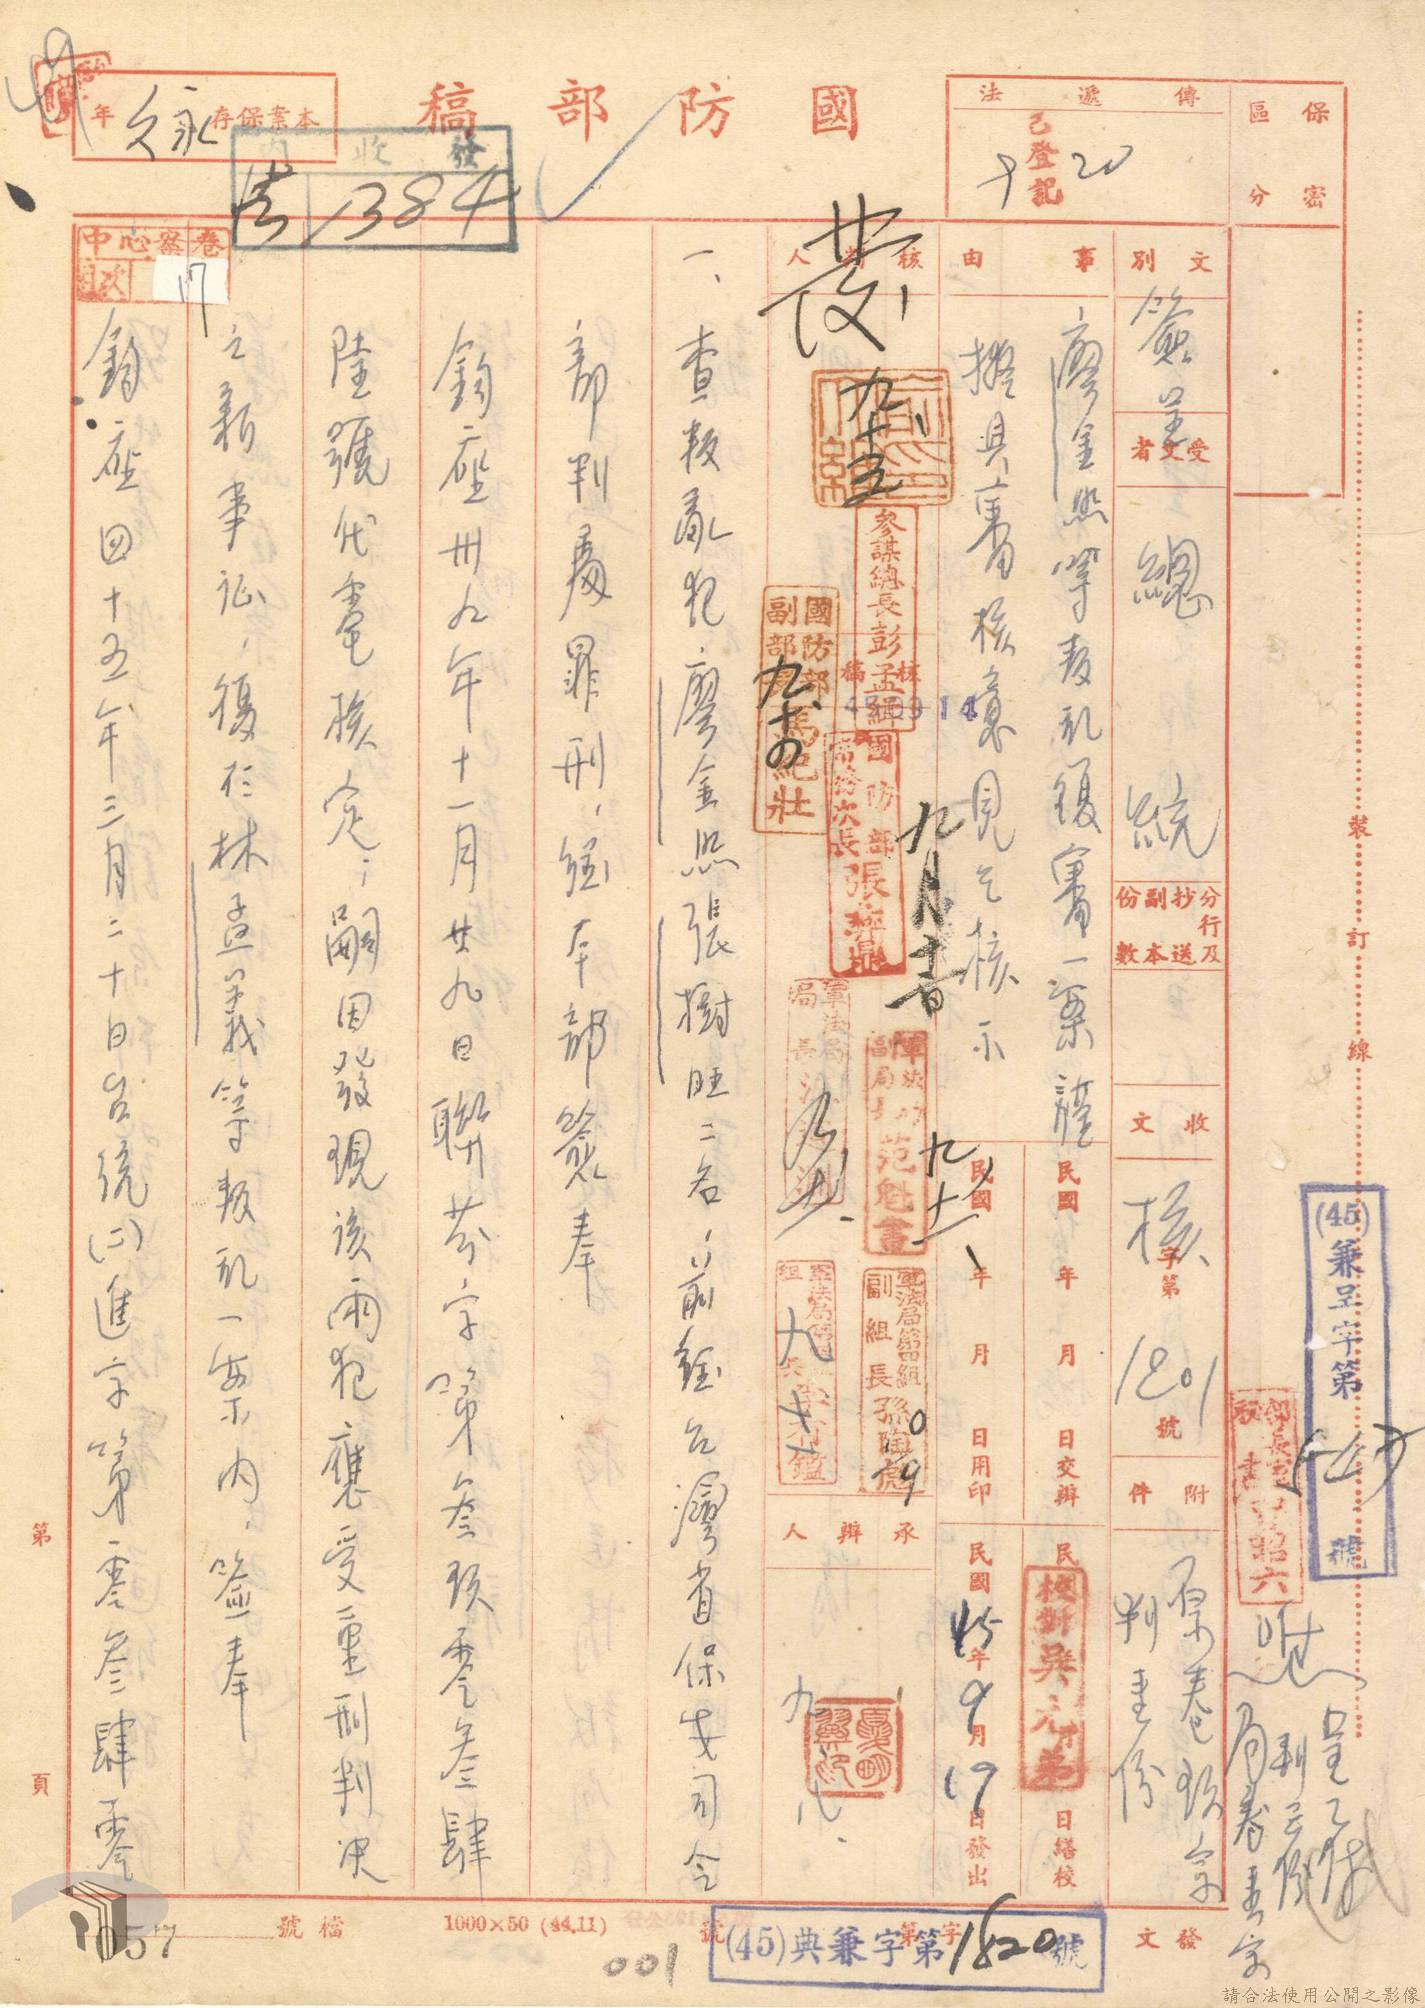 國防部稿
保密
區分
傳遞法
已登記
本案保存
永久
年
發收
1384
中心案卷
目次
17
文別
簽呈
受文者
總統
分行及抄送副本份數
收文
核字第1801號
附件
原卷玖宗
判壹份
事由
廖金照等叛乱復審一案謹
擬具審核意見乞核示
民國年月日交辦
民國年月日用印
民國45年9月19日發出
日繕校
校對吳元
核判人
發
九十五
參謀總長彭孟緝
國防部副部長馬紀壯
九十四
核稿
國防部常務次長張彝鼎
軍法局局長
軍法局副局長范魁書
九十一
軍法局第四組副組長孫陶
承辦人
九八
一、
查叛亂犯廖金照張樹旺二名,前經台灣省保安司令
部判處罪刑,經本部簽奉
鈞座卅九年十一月廿九日聯芬字第叁玖零叁肆
陸號代電核定;嗣因發現該兩犯應受重刑判決
之新事証,復于林孟義等叛乱一案內,簽奉
鈞座四十五年三月二十日台統(二)進字第零叁肆零
裝訂線
(45)兼呈字第
號
呈乙件
判三份
局卷壹宗
第
頁
檔號
1000×50 (44.11)
001
1057
發文
字第
號
(45)典兼字第1820號
請合法使用公開之影像